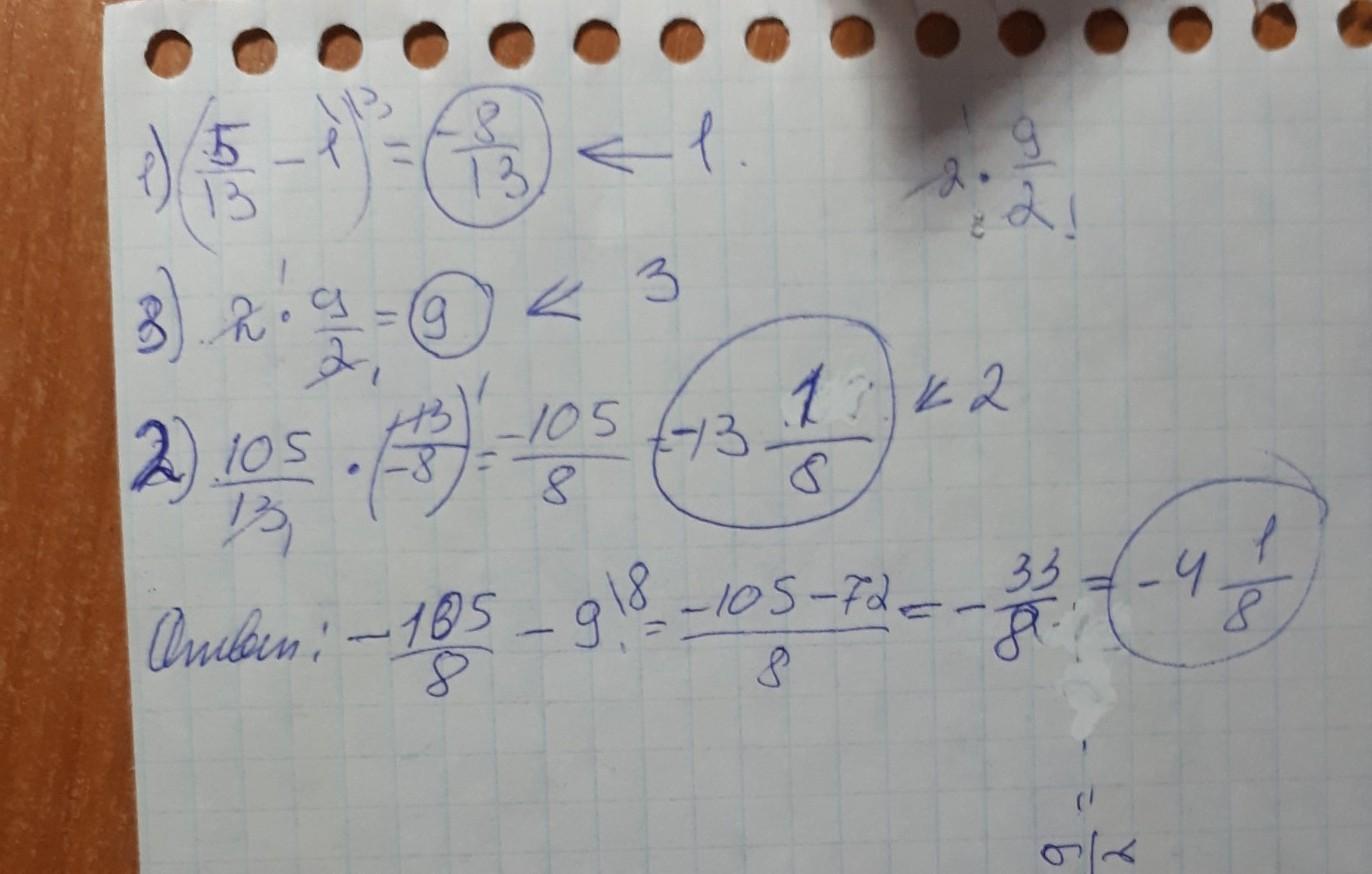 1) (5/13 - 1\13) = -8/13 ← 1.
2 · 9/2
3) 2 · 9/2 = 9 ← 3
2) 105/13 · (+13/-8) = -105/8 = -13 1/8 ← 2
Ответ: -105/8 - 9\8 = -105-72/8 = -33/8 = -4 1/8
= 9/2